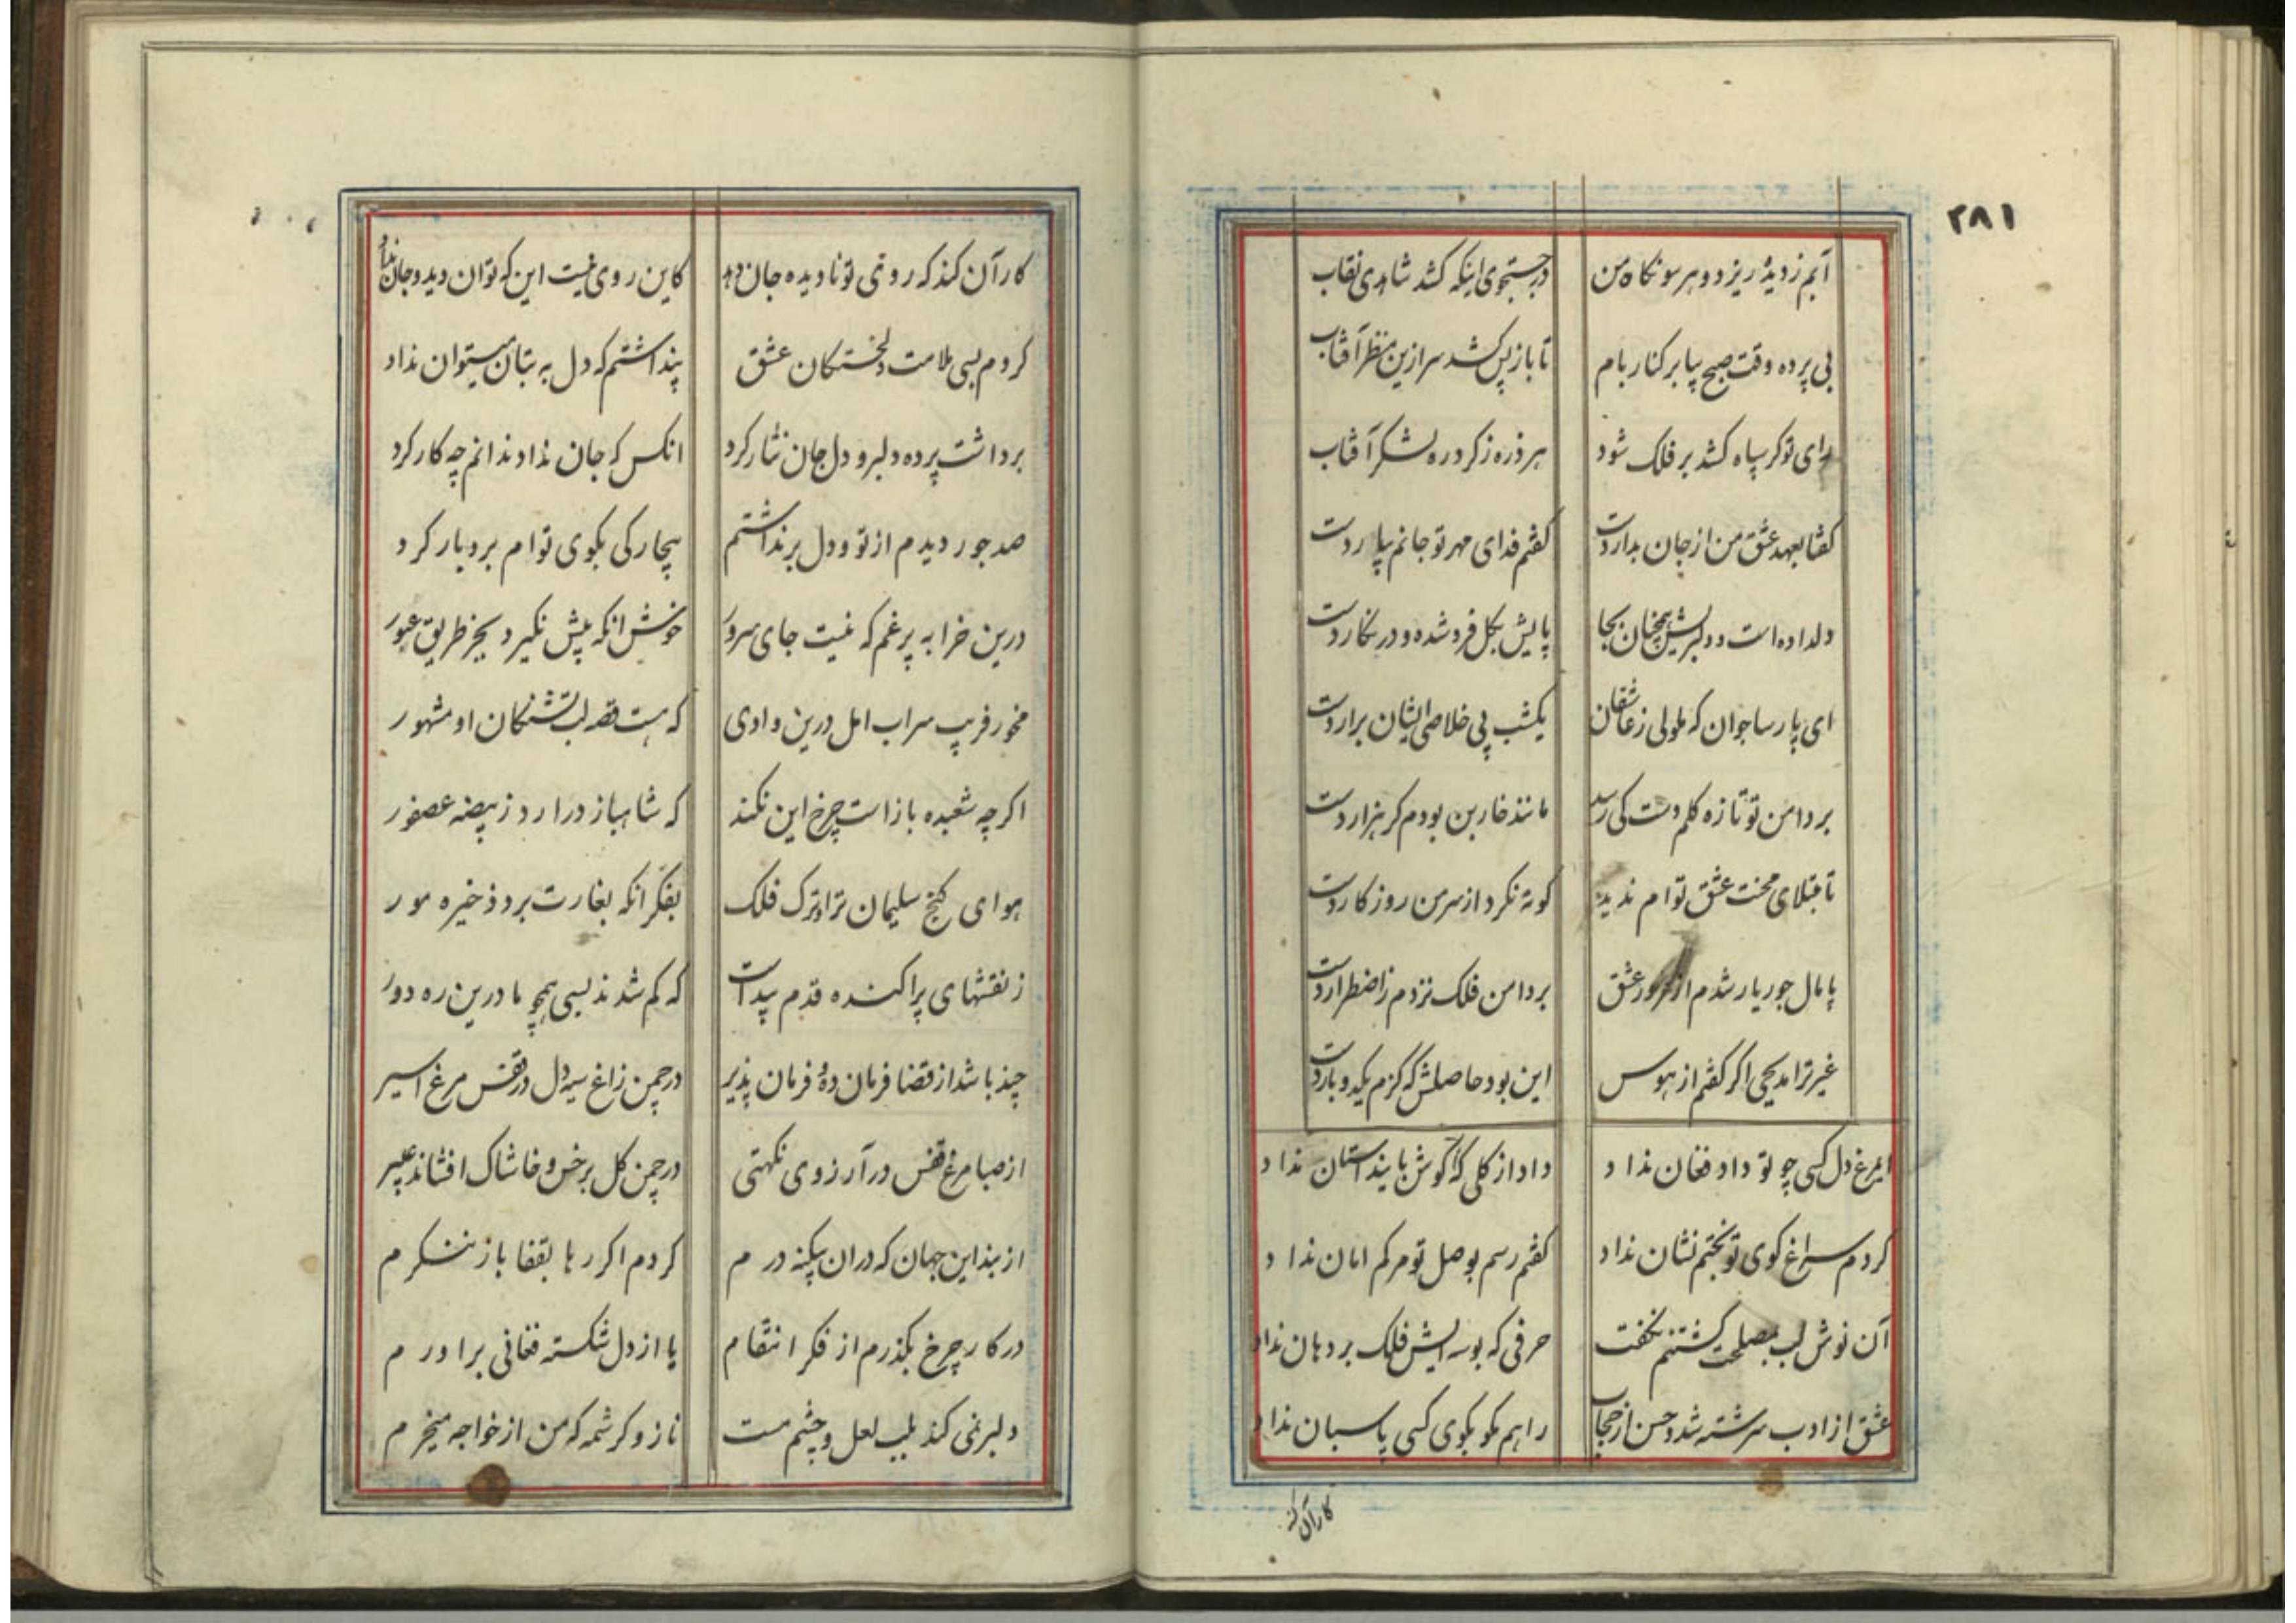 ۲۸۱
آبم ز دیده ریزد و هر سو نکاه من در جستجوی اینکه کشد شاهدی نقاب
بی پرده وقت صبح بیا بر کنار بام تا باز پس کشد سر ازین منظر آفتاب
رای تو کر سپاه کشد بر فلک شود هر ذره ز کرد ره لشکر آفتاب
کفتا بعهد عشق من از جان بدار دست کفتم فدای مهر تو جانم بیار دست
دلداده است و دلبرش همچنان بجا پایش بکل فرو شده و در نکار دست
ای پارسا جوان که ملولی ز عاشقان یکشب پی خلاصی ایشان برار دست
بر دامن تو تازه کلم دست کی رسد مانند خاربن بودم کر هزار دست
تا مبتلای محنت عشق توام ندید کوته نکرد از سر من روزکار دست
پامال جور یار شدم از غرور عشق بر دامن فلک نزدم ز اضطرار دست
غیر ترا بدیحی اکر کفتم از هوس این بود حاصلش که کزم یکدو بار دست
ایمرغ دل کسی چو تو داد فغان نداد داد از کلی که کوش باینداستان نداد
کردم سراغ کوی تو بختم نشان نداد کفتم رسم بوصل تو مرکم امان نداد
آن نوش لب بمصلحت کشتنم نکفت حرفی که بوسه ایش فلک بر دهان نداد
عشق از ادب سرشته شد و حسن از حجاب راهم مکو بکوی کسی پاسبان نداد
کار آن کند
کار آن کند که روی تو نادیده جان دهد کاین روی نیست این که توان دید و جان نداد
کردم بسی ملامت دلخستکان عشق پنداشتم که دل به بتان میتوان نداد
برداشت پرده دلبر و دل جان نثار کرد انکس که جان نداد ندانم چه کار کرد
صد جور دیدم از تو و دل برنداشتم بیچارکی بکوی توام بردبار کرد
درین خرابه پر غم که نیست جای سرور خوش انکه پیش نکیرد بجز طریق عبور
مخور فریب سراب امل درین وادی که هست قصه لب تشنکان او مشهور
اکر چه شعبده باز است چرخ این نکند که شاهباز درارد ز بیضه عصفور
هوای کنج سلیمان ترا و ترک فلک بفکر انکه بغارت برد ذخیره مور
ز نقشهای پراکنده قدم پیداست که کم شدند بسی همچو ما درین ره دور
چند باشد از قضا فرمان ده و فرمان پذیر در چمن زاغ سیه دل در قفس مرغ اسیر
از صبا مرغ قفس در آرزوی نکهتی در چمن کل بر خس و خاشاک افشاند عبیر
از بند این جهان که دران بیکنه درم کردم اکر رها بقفا باز ننکرم
در کار چرخ بکذرم از فکر انتقام یا از دل شکسته فغانی براورم
دلبر نمی کند بلب لعل و چشم مست ناز و کرشمه که من از خواجه میخرم